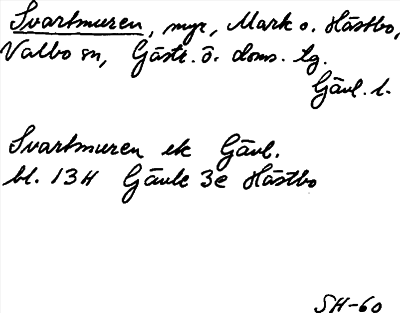 Svartmuren, myr, Mark o. Hästbo,
Valbo sn, Gästr. ö. doms. tg.
Gävl. l.
Svartmuren ek Gävl.
bl. 13H Gävle 3e Hästbo
SH-60